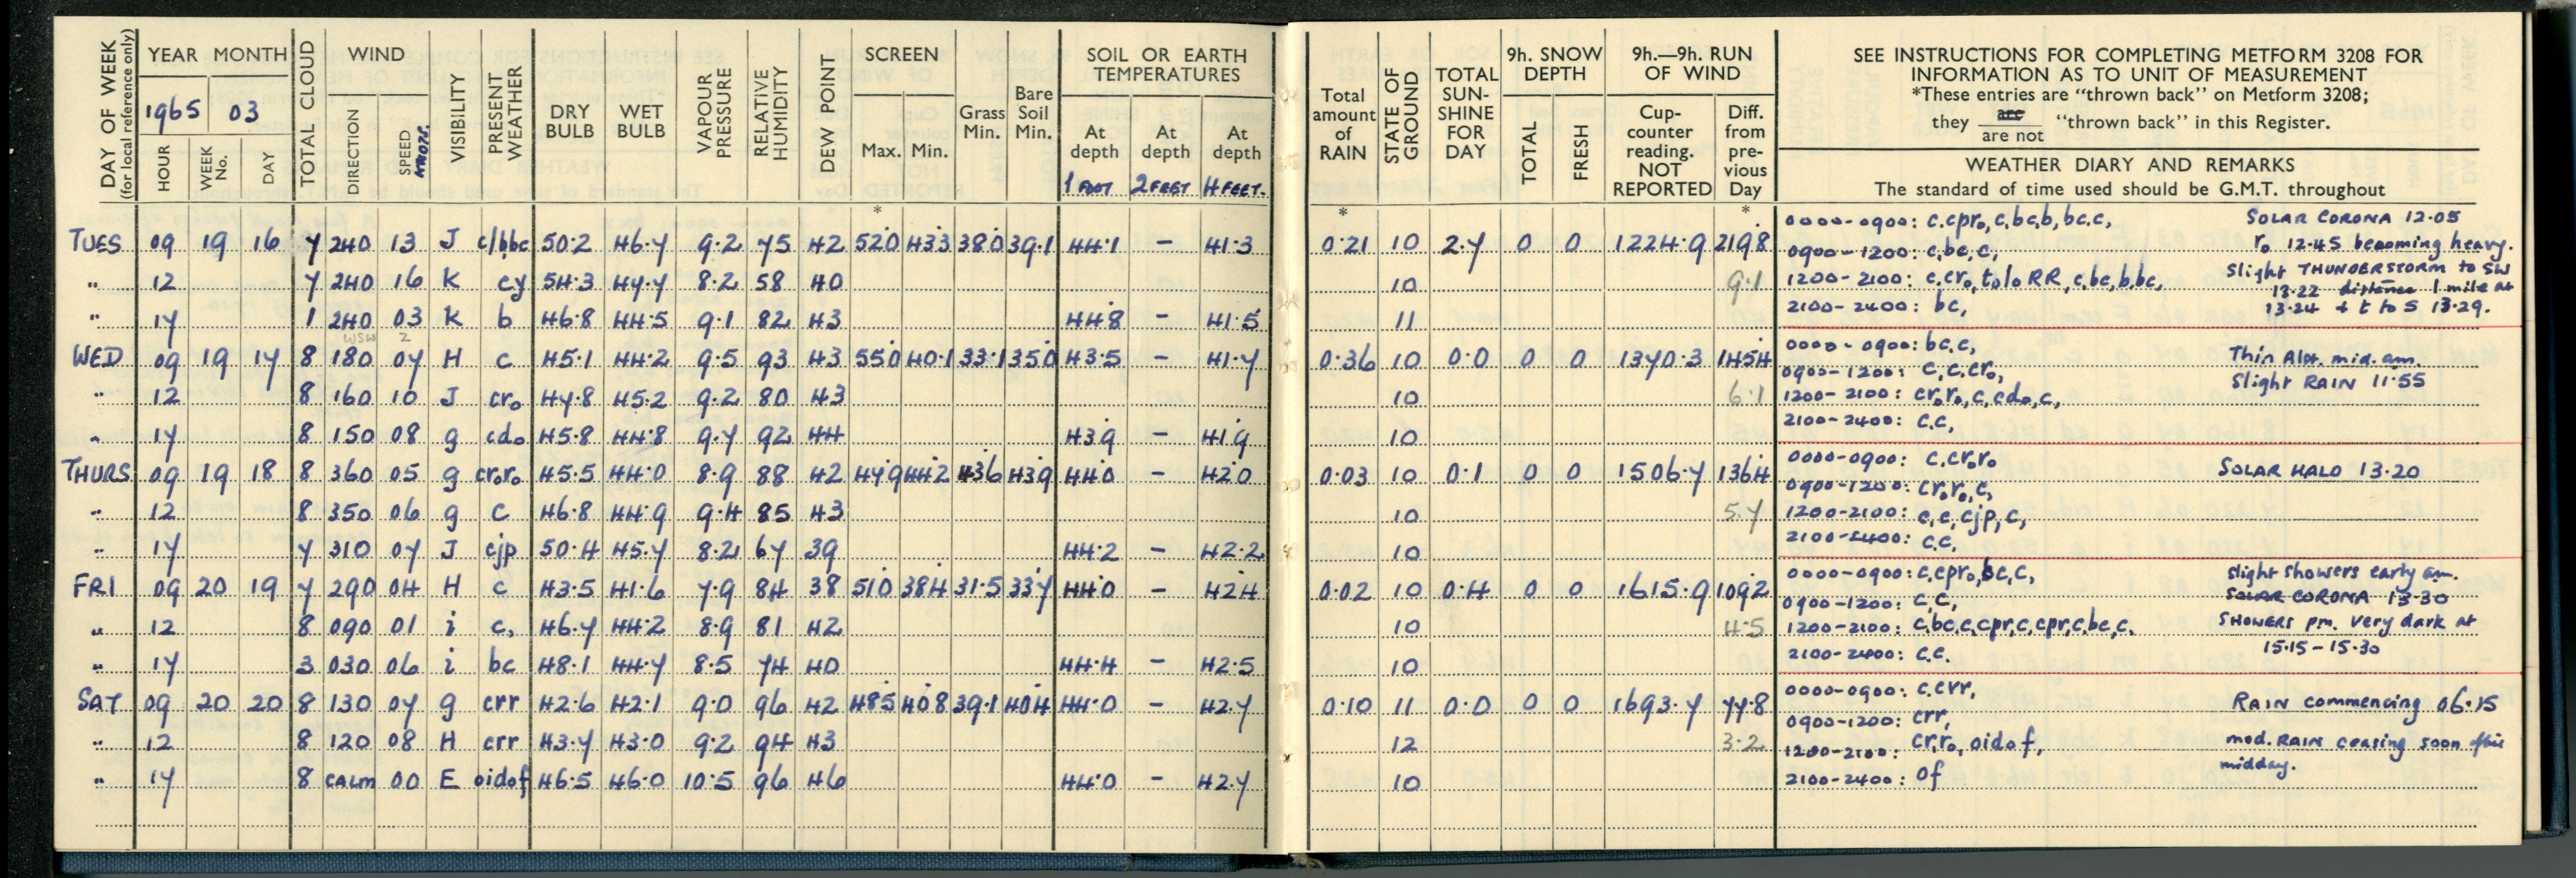 DAY OF WEEK (for local reference only) YEAR MONTH TOTAL CLOUD WIND VISIBILITY PRESENT WEATHER DRY BULB WET BULB VAPOUR PRESSURE RELATIVE HUMIDITY DEW POINT SCREEN Grass Min. Bare Soil Min. SOIL OR EARTH TEMPERATURES
1965 03
HOUR WEEK No. DAY DIRECTION SPEED KNOTS Max. Min. At depth At depth At depth
1 FOOT 2 FEET 4 FEET.
Total amount of RAIN STATE OF GROUND TOTAL SUN-SHINE FOR DAY 9h. SNOW DEPTH TOTAL FRESH 9h.—9h. RUN OF WIND Cup-counter reading. NOT REPORTED Diff. from pre-vious Day
SEE INSTRUCTIONS FOR COMPLETING METFORM 3208 FOR
INFORMATION AS TO UNIT OF MEASUREMENT
*These entries are "thrown back" on Metform 3208;
they are / are not "thrown back" in this Register.
WEATHER DIARY AND REMARKS
The standard of time used should be G.M.T. throughout
* * *
TUES 09 19 16 7 240 13 J c/bbc 50.2 46.7 9.2 75 42 52.0 43.3 38.0 39.1 44.1 – 41.3 0.21 10 2.7 0 0 1224.9 219.8
" 12 7 240 16 K cy 54.3 47.7 8.2 58 40 10 9.1
" 17 1 240 03 K b 46.8 44.5 9.1 82 43 44.8 – 41.5 11
WSW 2
0000-0900: c.cpr₀, c,bc,b,bc.c, SOLAR CORONA 12.05
0900-1200: c,bc,c, r₀ 12.45 becoming heavy.
1200-2100: c,cr₀, t₀l₀ RR, c,bc,b,bc, Slight THUNDERSTORM to SW
13.22 distance 1 mile at
2100-2400: bc, 13.24 + t to S 13.29.
WED 09 19 17 8 180 07 H c 45.1 44.2 9.5 93 43 55.0 40.1 33.1 35.0 43.5 – 41.7 0.36 10 0.0 0 0 1370.3 145.4
" 12 8 160 10 J cr₀ 47.8 45.2 9.2 80 43 10 6.1
" 17 8 150 08 g cd₀ 45.8 44.8 9.7 92 44 43.9 – 41.9 10
0000-0900: bc,c, Thin Alt. mid. am.
0900-1200: c,c,cr₀, Slight RAIN 11.55
1200-2100: cr₀r₀,c,cd₀,c,
2100-2400: c.c,
THURS 09 19 18 8 360 05 g cr₀r₀ 45.5 44.0 8.9 88 42 47.9 44.2 43.6 43.9 44.0 – 42.0 0.03 10 0.1 0 0 1506.7 136.4
" 12 8 350 06 g c 46.8 44.9 9.4 85 43 10 5.7
" 17 7 310 07 J cjp 50.4 45.7 8.2 67 39 44.2 – 42.2 10
0000-0900: c.cr₀r₀ SOLAR HALO 13.20
0900-1200: cr₀r₀,c,
1200-2100: c,c,cjp,c,
2100-2400: c.c,
FRI 09 20 19 7 290 04 H c 43.5 41.6 7.9 84 38 51.0 38.4 31.5 33.7 44.0 – 42.4 0.02 10 0.4 0 0 1615.9 109.2
" 12 8 090 01 i c, 46.7 44.2 8.9 81 42 10 4.5
" 17 3 030 06 i bc 48.1 44.7 8.5 74 40 44.4 – 42.5 10
0000-0900: c,cpr₀,bc,c, slight showers early am.
0900-1200: c,c, SOLAR CORONA 13.30
1200-2100: c,bc,c,cpr,c,cpr,c,bc,c. SHOWERS pm. very dark at
2100-2400: c.c. 15.15 – 15.30
SAT 09 20 20 8 130 07 g crr 42.6 42.1 9.0 96 42 48.5 40.8 39.1 40.4 44.0 – 42.7 0.10 11 0.0 0 0 1693.7 77.8
" 12 8 120 08 H crr 43.7 43.0 9.2 94 43 12 3.2
" 17 8 CALM 00 E oidof 46.5 46.0 10.5 96 46 44.0 – 42.7 10
0000-0900: c.crr, RAIN commencing 06.15
0900-1200: crr,
1200-2100: cr,r₀, oidof, mod. RAIN ceasing soon after
2100-2400: of midday.